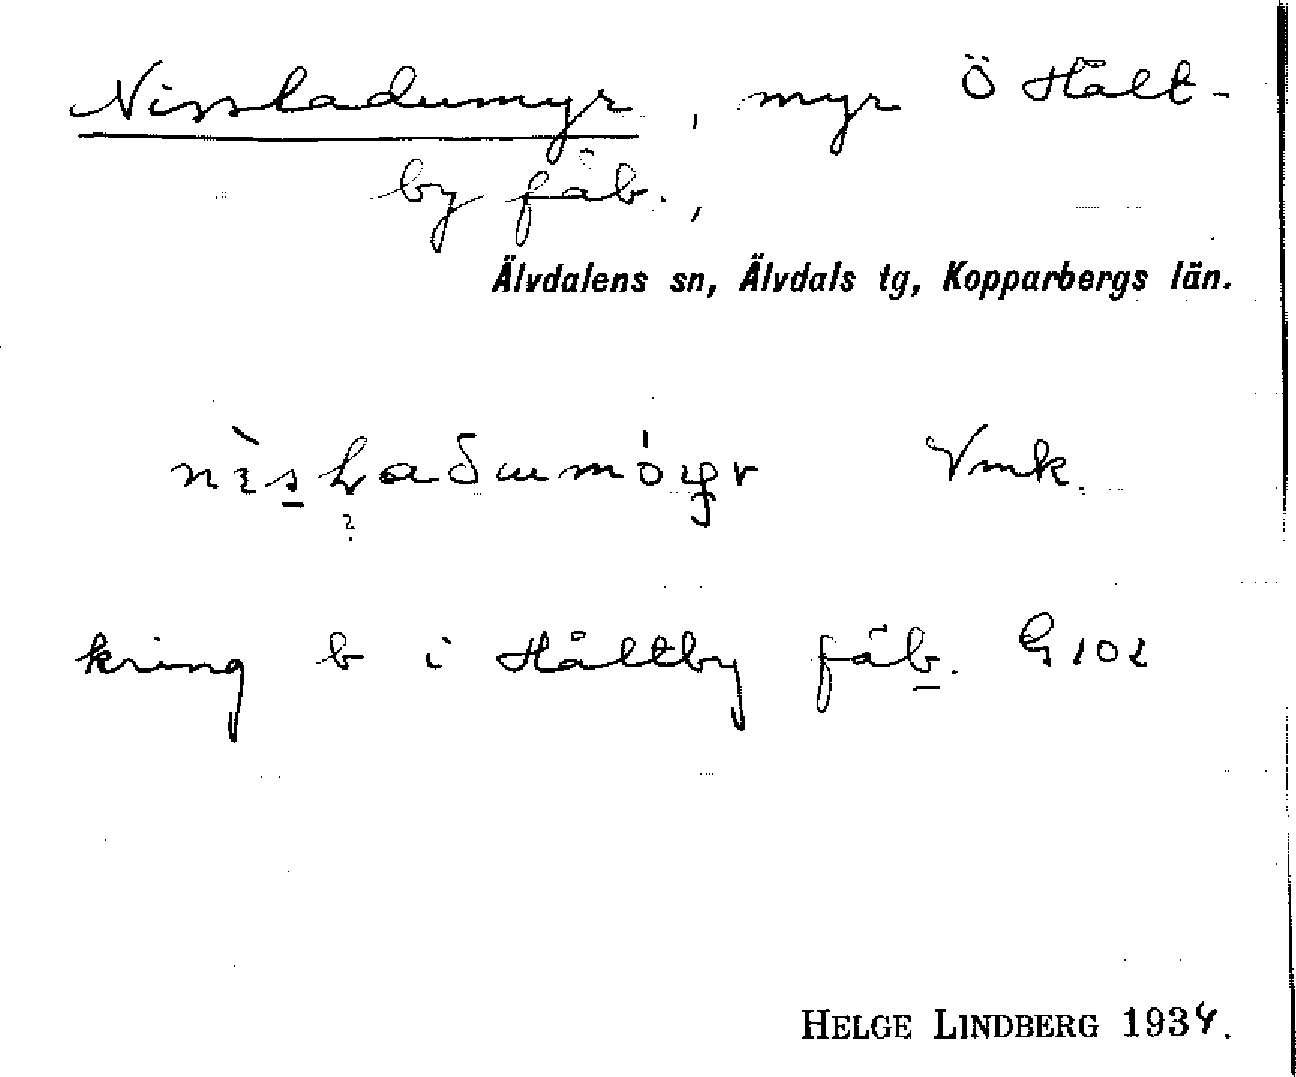 Nissladumyr, myr Ö Hålt-
by fäb.,
Älvdalens sn, Älvdals tg, Kopparbergs län.
Vmk.
?
kring b i Håltby fäb. G 102
HELGE LINDBERG 1934.